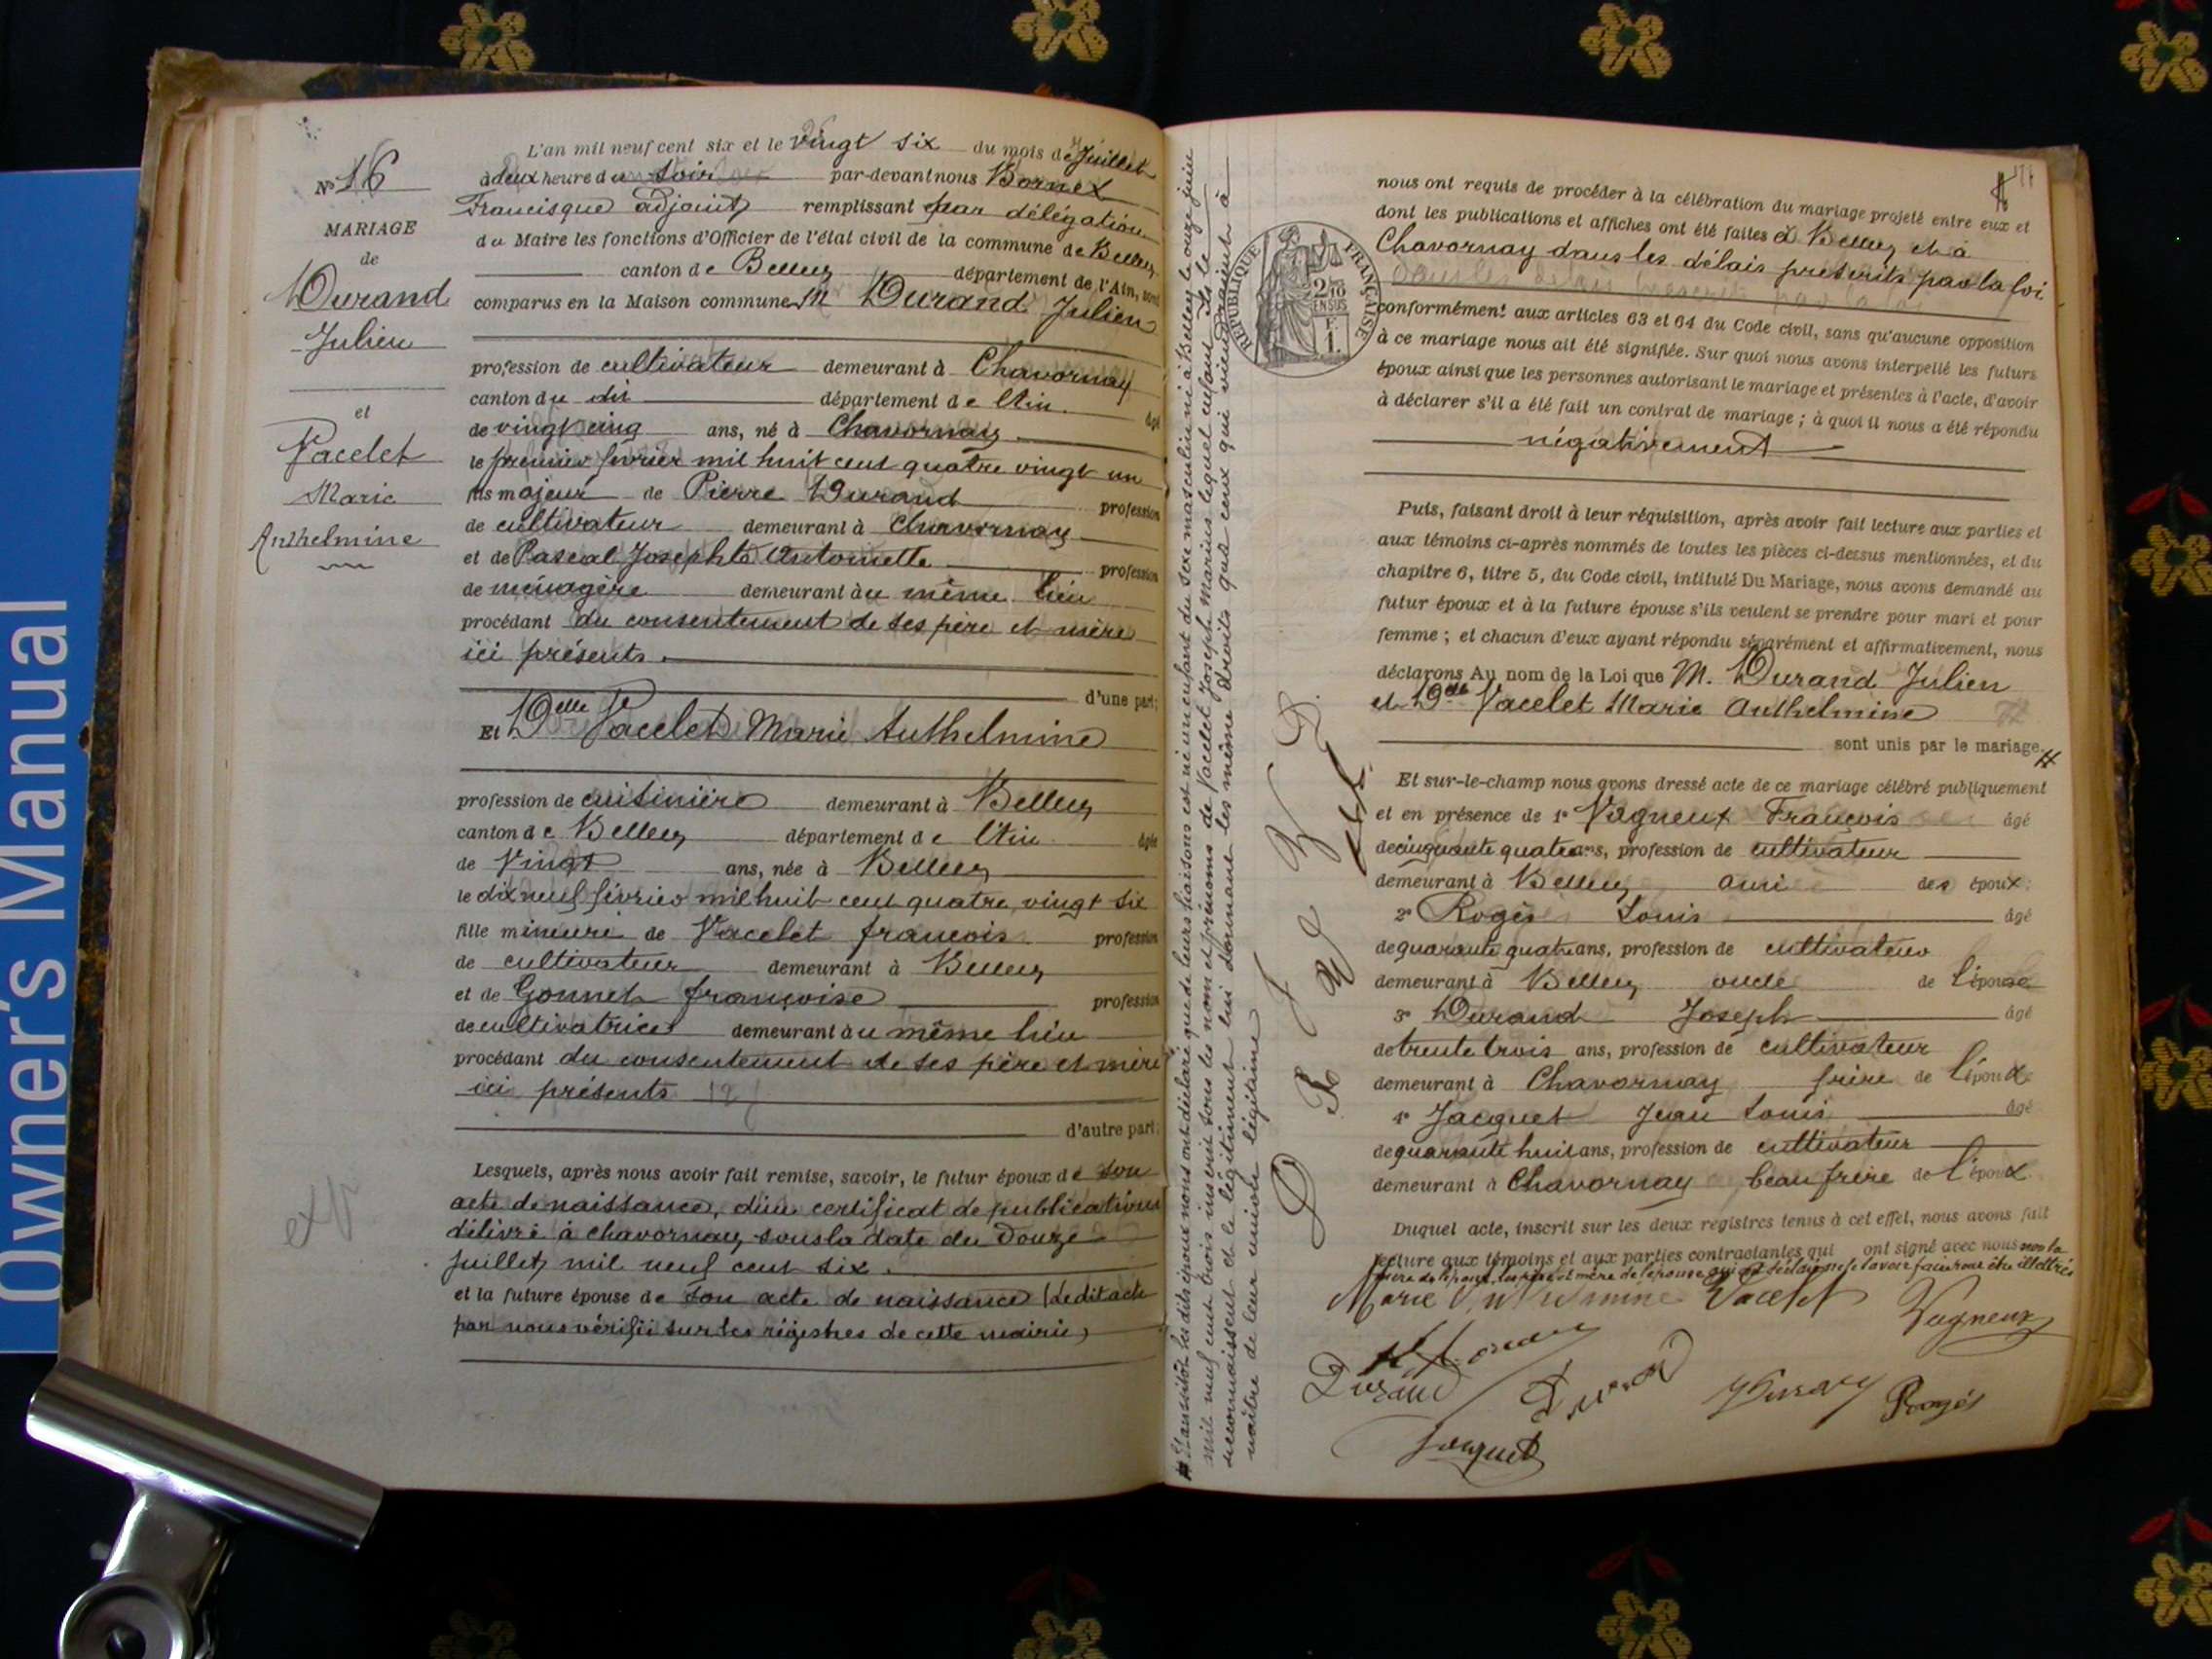 Owner's Manual
L'an mil neuf cent six et le vingt six du mois de Juillet
N° 16
à deux heure du soir par-devant nous Bornex
Francisque adjoint remplissant par délégation
du Maire les fonctions d'Officier de l'état civil de la commune de Belley
canton de Belley département de l'Ain, sont
comparus en la Maison commune M Durand Julien
MARIAGE
de
Durand
Julien
et
Vacelet
Marie
Anthelmine
profession de cultivateur demeurant à Chavornay
canton du dit département de l'Ain. âgé
de vingt cinq ans, né à Chavornay
le premier février mil huit cent quatre vingt un
fils majeur de Pierre Durand profession
de cultivateur demeurant à Chavornay
et de Pascal Josephte Antoinette profession
de ménagère demeurant au même lieu
procédant du consentement de ses père et mère
ici présents.
d'une part;
Et Delle Vacelet Marie Anthelmine
profession de cuisinière demeurant à Belley
canton de Belley département de l'Ain âgée
de Vingt ans, née à Belley
le dix neuf février mil huit cent quatre vingt six
fille mineure de Vacelet françois profession
de cultivateur demeurant à Belley
et de Gonnet françoise profession
de cultivatrice demeurant au même lieu
procédant du consentement de ses père et mère
ici présents
d'autre part;
Lesquels, après nous avoir fait remise, savoir, le futur époux de son
acte de naissance, d'un certificat de publications
délivré à chavornay sous la date du Douze
Juillet mil neuf cent six.
et la future épouse de son acte de naissance (ledit acte
par nous vérifié sur les régistres de cette mairie)
# Et aussitôt les dits époux nous ont déclaré que de leurs liaisons est né un enfant du sexe masculin né à Belley le onze juin
mil neuf cent trois inscrit sous les nom et prénoms de Vacelet Joseph Marius lequel enfant Ils le
reconnaissent et le légitiment lui donnant les même droits qu'à ceux qui viendraient à
naître de leur union légitime
RÉPUBLIQUE FRANÇAISE
2/10 EN SUS
F.
1.
nous ont requis de procéder à la célébration du mariage projeté entre eux et
dont les publications et affiches ont été faites à Belley et à
Chavornay dans les délais prescrits par la loi
conformément aux articles 63 et 64 du Code civil, sans qu'aucune opposition
à ce mariage nous ait été signifiée. Sur quoi nous avons interpellé les futurs
époux ainsi que les personnes autorisant le mariage et présentes à l'acte, d'avoir
à déclarer s'il a été fait un contrat de mariage ; à quoi il nous a été répondu
négativement
Puis, faisant droit à leur réquisition, après avoir fait lecture aux parties et
aux témoins ci-après nommés de toutes les pièces ci-dessus mentionnées, et du
chapitre 6, titre 5, du Code civil, intitulé Du Mariage, nous avons demandé au
futur époux et à la future épouse s'ils veulent se prendre pour mari et pour
femme ; et chacun d'eux ayant répondu séparément et affirmativement, nous
déclarons Au nom de la Loi que M. Durand Julien
et Delle Vacelet Marie Anthelmine
sont unis par le mariage. #
Et sur-le-champ nous avons dressé acte de ce mariage célébré publiquement
et en présence de 1° Vagneux François âgé
de cinquante quatre ans, profession de cultivateur
demeurant à Belley ami des époux;
2° Rogès Louis âgé
de quarante quatre ans, profession de cultivateur
demeurant à Belley oncle de l'épouse
3° Durand Joseph âgé
de trente trois ans, profession de cultivateur
demeurant à Chavornay frère de l'époux
4° Jacquet Jean Louis âgé
de quarante huit ans, profession de cultivateur
demeurant à Chavornay beau frère de l'époux
Duquel acte, inscrit sur les deux registres tenus à cet effet, nous avons fait
lecture aux témoins et aux parties contractantes qui ont signé avec nous non la
mère de l'époux, les père et mère de l'épouse qui ont déclaré ne le savoir faire pour être illettrés
Marie Anthelmine Vacelet
Vagneux
Durand
Durand
Rogés
Jacquet